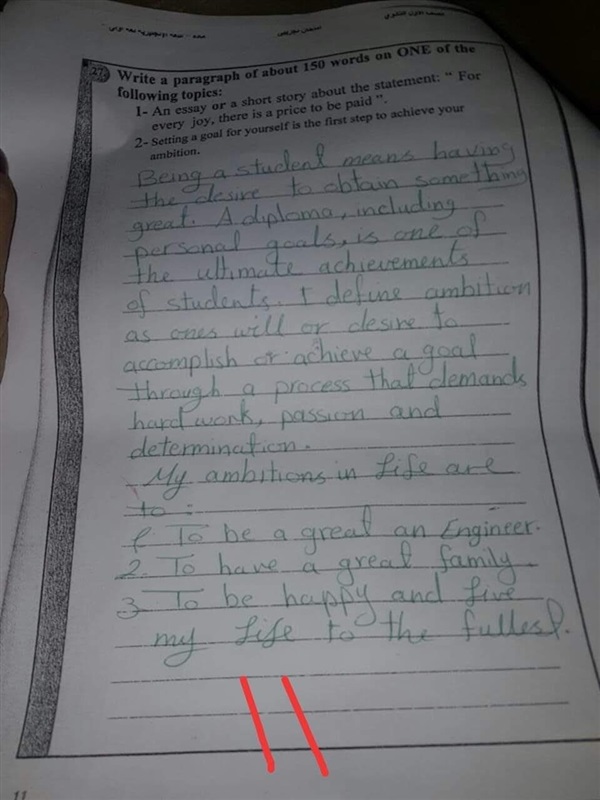 الصف الأول الثانوي
27
Write a paragraph of about 150 words on ONE of the
following topics:
1- An essay or a short story about the statement: " For
every joy, there is a price to be paid ".
2- Setting a goal for yourself is the first step to achieve your
ambition.
Being a student means having
the desire to obtain something
great. A diploma, including
personal goals, is one of
the ultimate achievements
of students. I define ambition
as ones will or desire to
accomplish or achieve a goal
through a process that demands
hard work, passion and
determination.
My ambitions in Life are
to :
1. To be a great an Engineer.
2. To have a great family
3. To be happy and Live
my Life to the fullest.
11